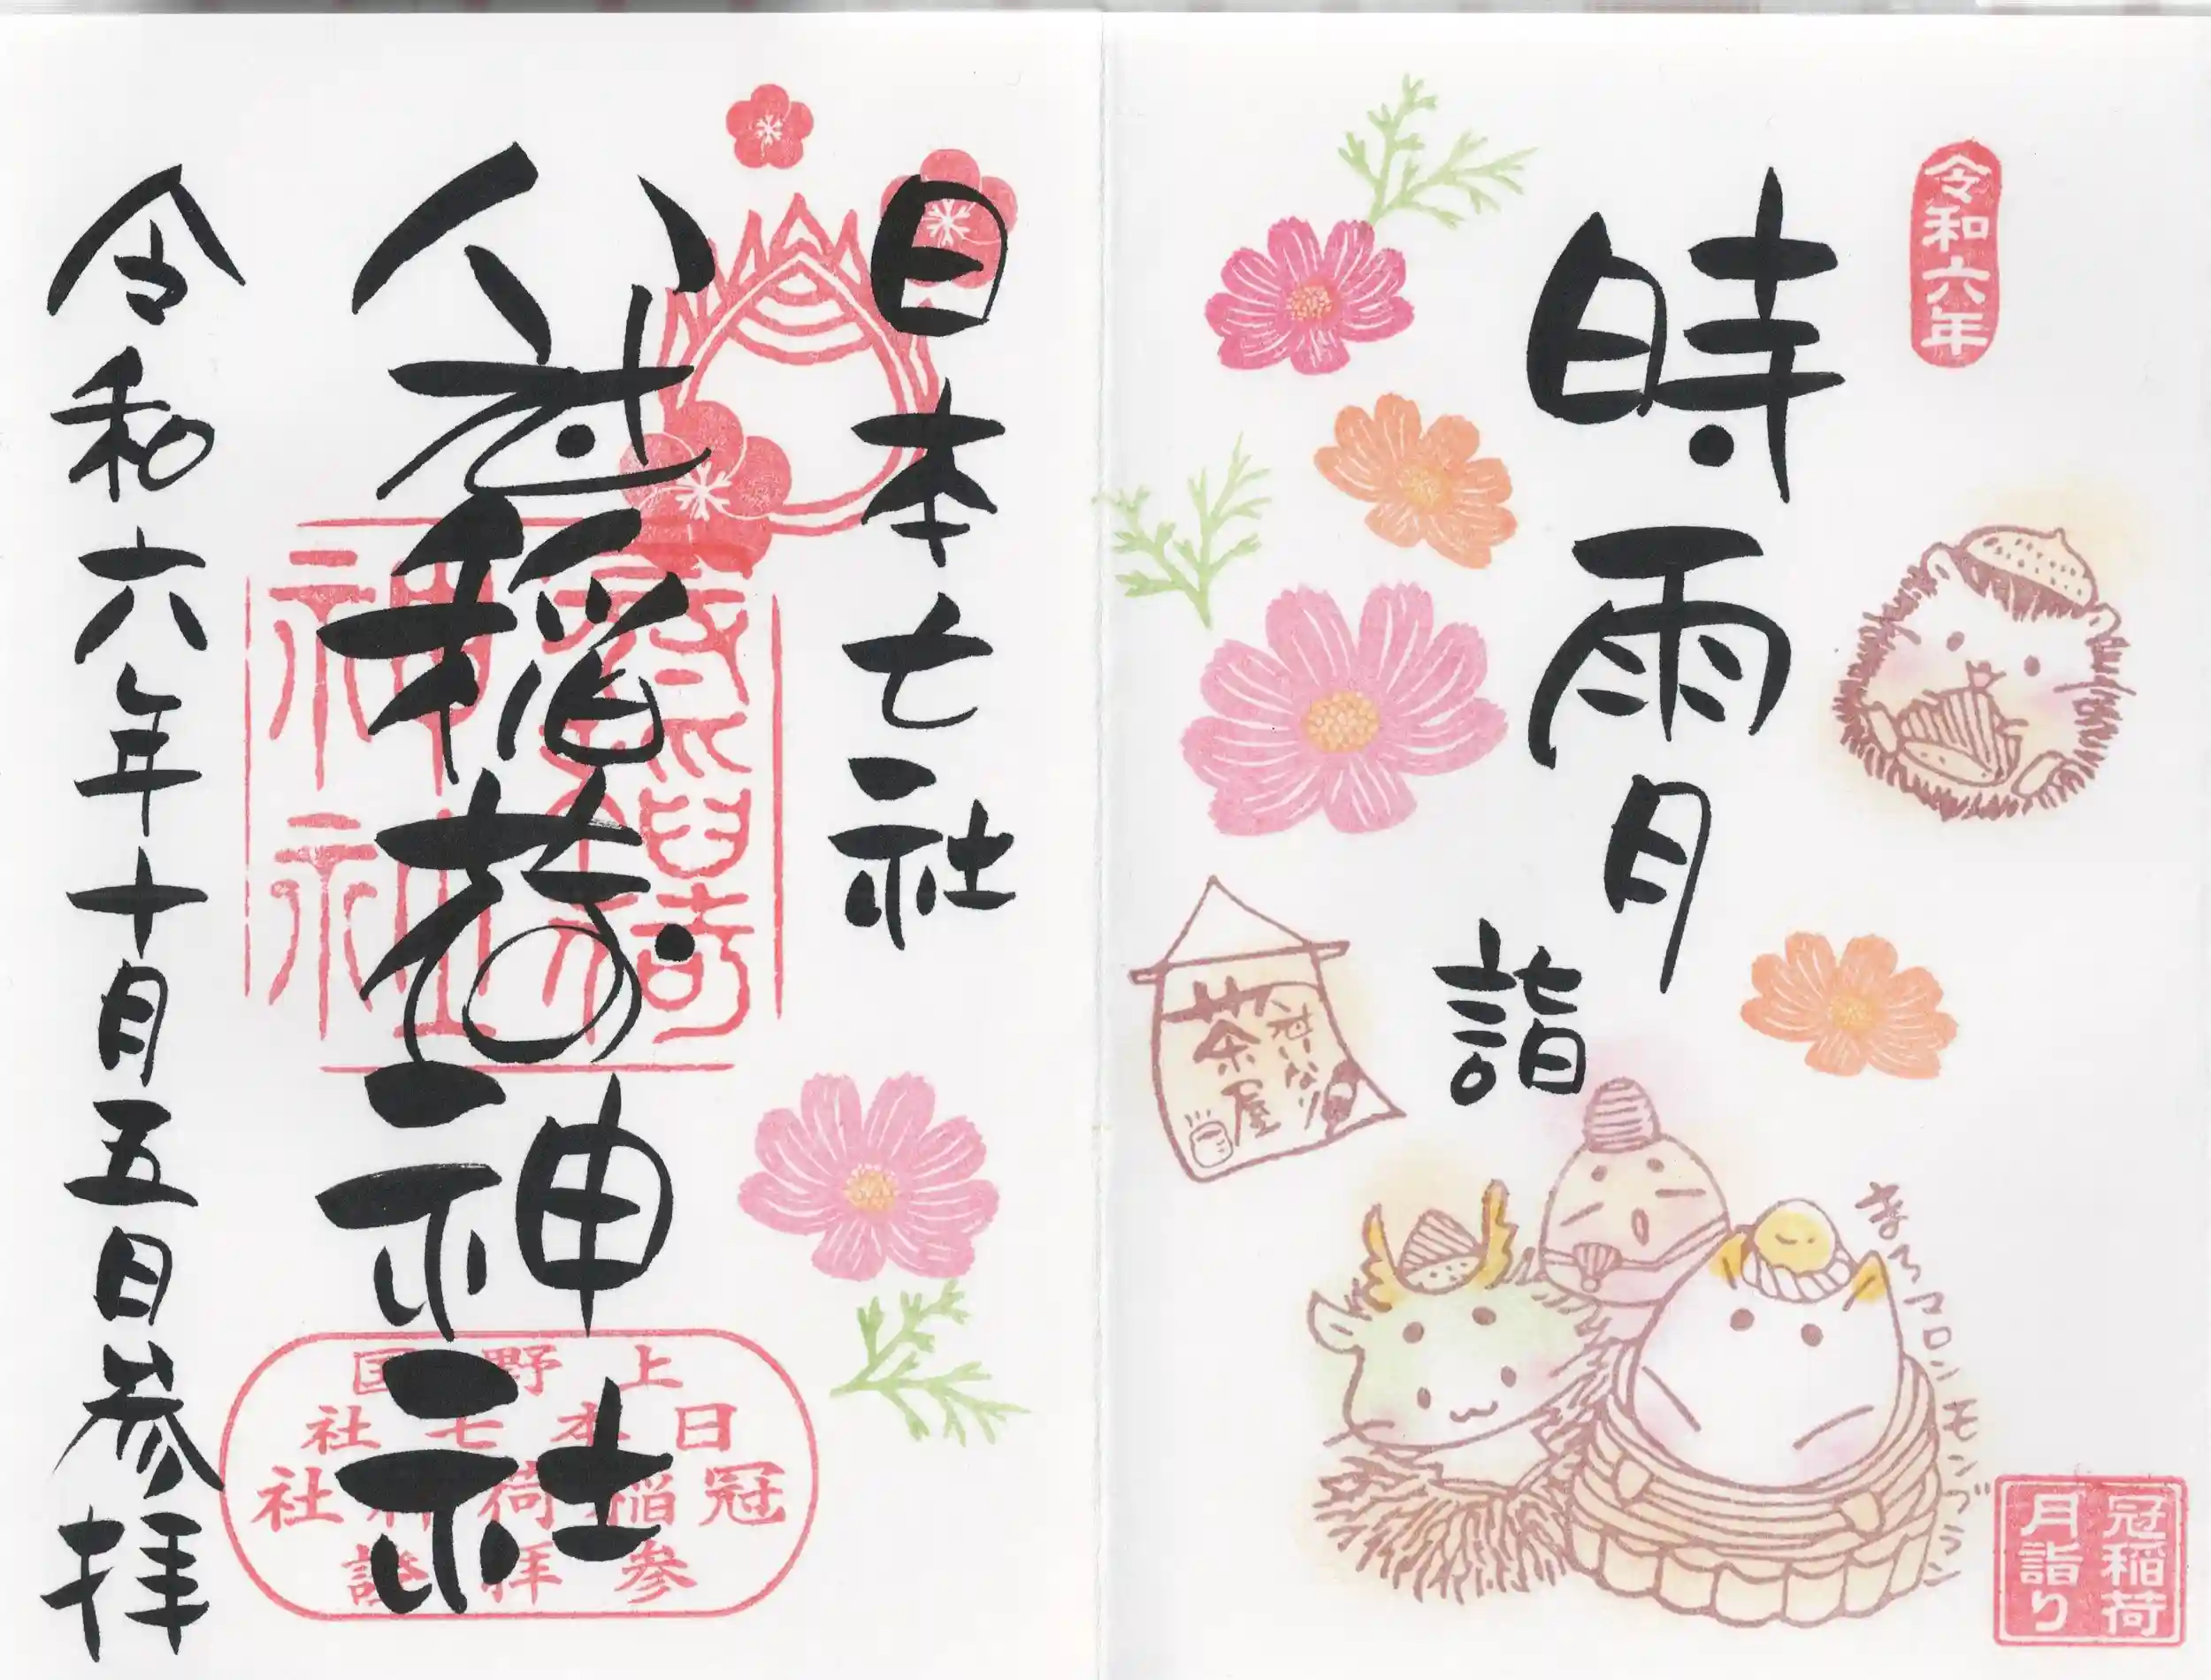 令和六年
時雨月
詣
冠いなり
茶屋
まろマロンモンブラン
冠稲荷
月詣り
日本七社
冠稲荷神社
令和六年十月五日参拝
上野国
日本七社
冠稲荷神社
参拝證